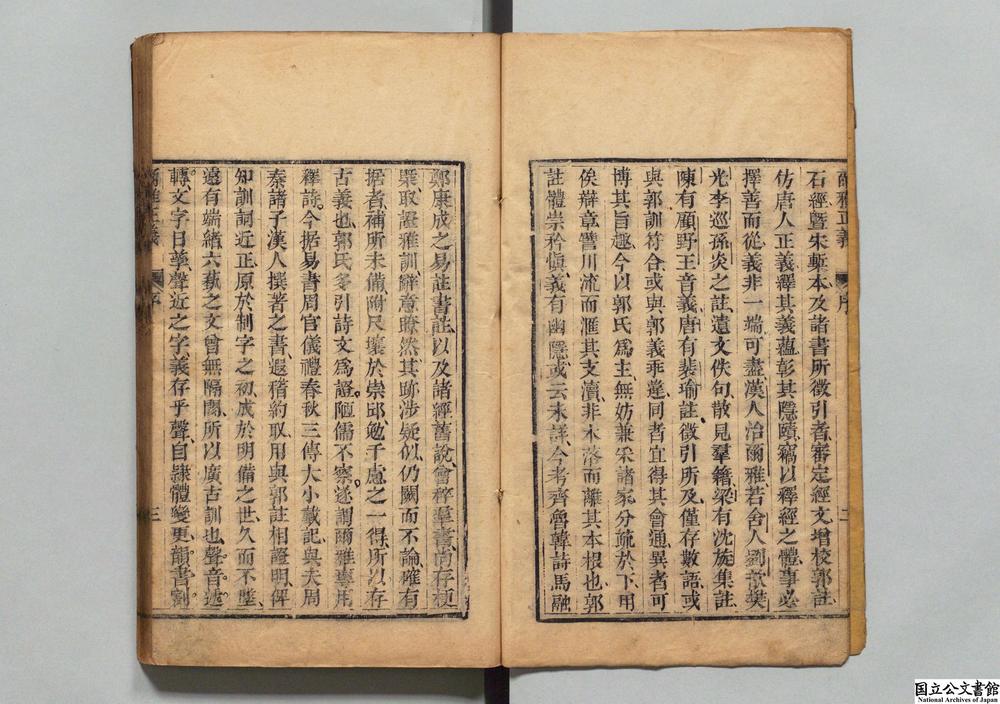 爾雅正義 序 二
石經暨宋槧本及諸書所徵引者審定經文增校郭註
仿唐人正義繹其義蘊彰其隱賾竊以釋經之體事必
擇善而從義非一端可盡漢人治爾雅若舍人劉歆樊
光李巡孫炎之註遺文佚句散見羣籍梁有沈旋集註
陳有顧野王音義唐有裴瑜註徵引所及僅存數語或
與郭訓符合或與郭義乖違同者宜得其會通異者可
博其旨趣今以郭氏爲主無妨兼采諸家分疏於下用
俟辯章譬川流而滙其支瀆非木落而離其本根也郭
註體崇矜愼義有幽隱或云未詳今考齊魯韓詩馬融
鄭康成之易註書註以及諸經舊說會粹羣書尚存梗
槩取證雅訓辭意瞭然其跡涉疑似仍闕而不論確有
据者補所未備附尺壤於崇邱勉千慮之一得所以存
古義也郭氏多引詩文爲證陋儒不察遂謂爾雅專用
釋詩今据易書周官儀禮春秋三傳大小戴記與夫周
秦諸子漢人撰著之書遐稽約取用與郭註相證明俾
知訓詞近正原於制字之初成於明備之世久而不墜
遠有端緒六藝之文曾無隔閡所以廣古訓也聲音遞
轉文字日孳聲近之字義存乎聲自隷體變更韻書割
爾雅正義 序 三
国立公文書館
National Archives of Japan